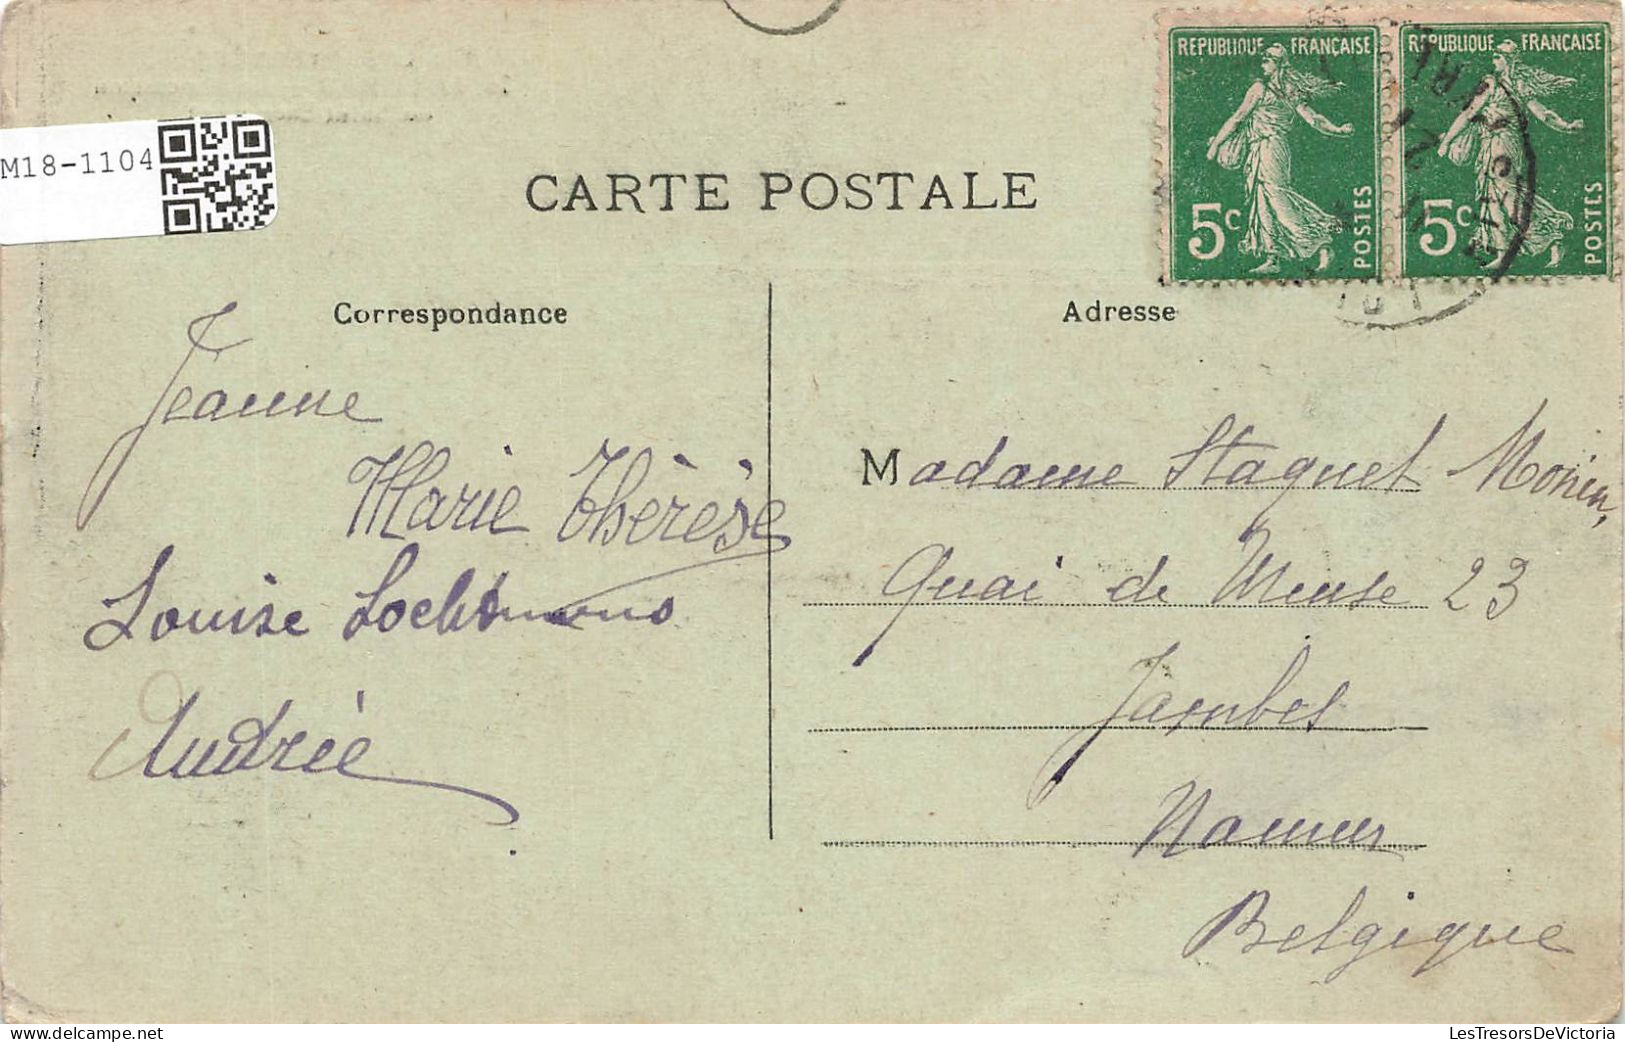 REPUBLIQUE FRANÇAISE
5c
POSTES
REPUBLIQUE FRANÇAISE
5c
POSTES
M18-1104
CARTE POSTALE
Correspondance
Jeanne
Marie Thérèse
Louise
Andrée
Adresse
Madame Staquet
Quai de Meuse 23
Jambes
Namur
Belgique
www.delcampe.net
LesTresorsDeVictoria